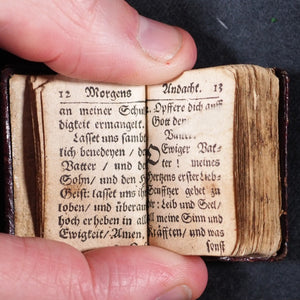 12 Morgens
an meiner Schul
digkeit ermangelt.
Lasset uns samb
lich benedeyen / de
Vatter / und de
Sohn / und den H
Geist: lasset uns ih
loben / und überau
hoch erheben in all
Ewigkeit / Amen.
Andacht. 13
Opffere dich auff
Gott dem
Ewiger Vat-
ter! meines
Hertzens erster Lieb-
Seufftzer gehet zu
: Leib und Seel /
meine Sinn und
Kräfften / und was
sonst